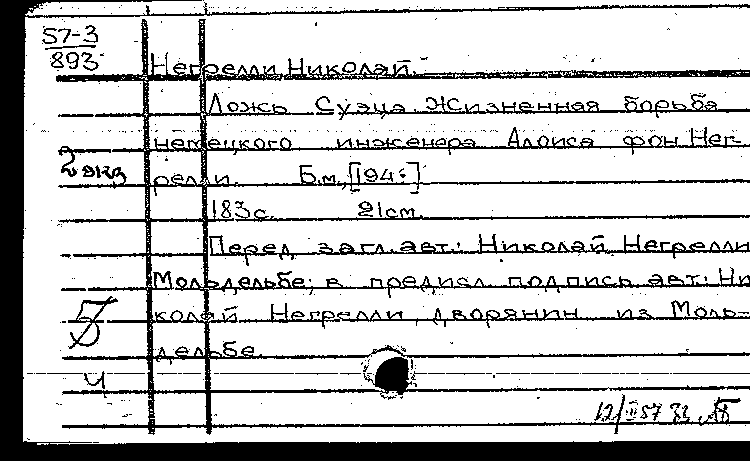 57-3
893
Негрелли Николай.
Ложь Суэца. Жизненная борьба
немецкого инженера Алоиса фон Нег-
2 экз
релли. Б.м., [194-]
183 с. 21 см.
Перед загл. авт.: Николай Негрелли
Мольдельбе; в предисл подпись авт: Ни
колай Негрелли, дворянин из Моль-
дельбе.
Ч
12/II 57